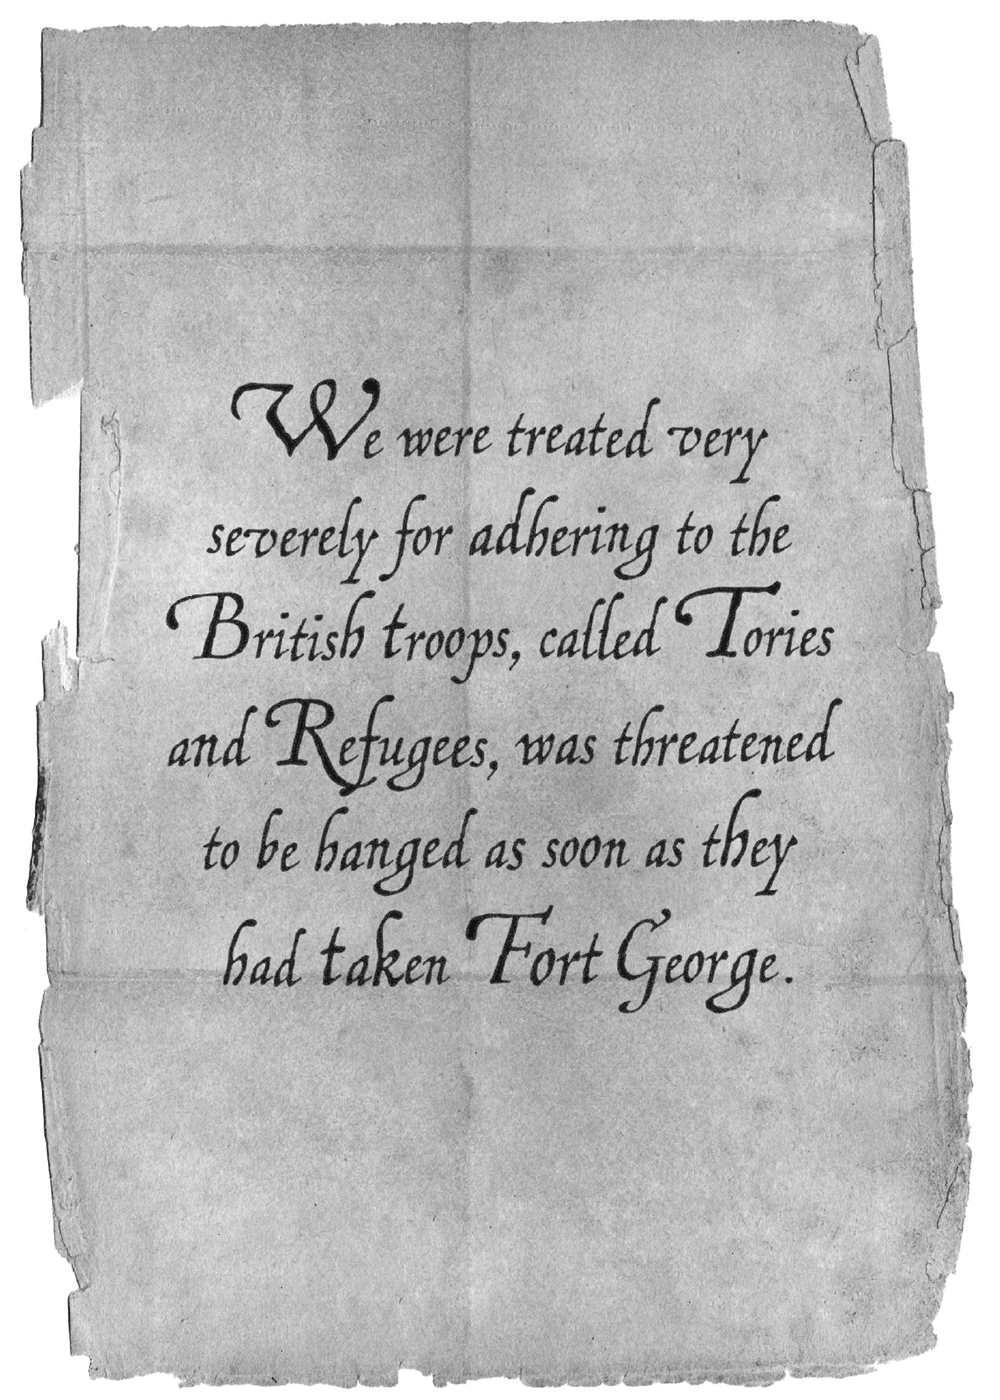 We were treated very
severely for adhering to the
British troops, called Tories
and Refugees, was threatened
to be hanged as soon as they
had taken Fort George.